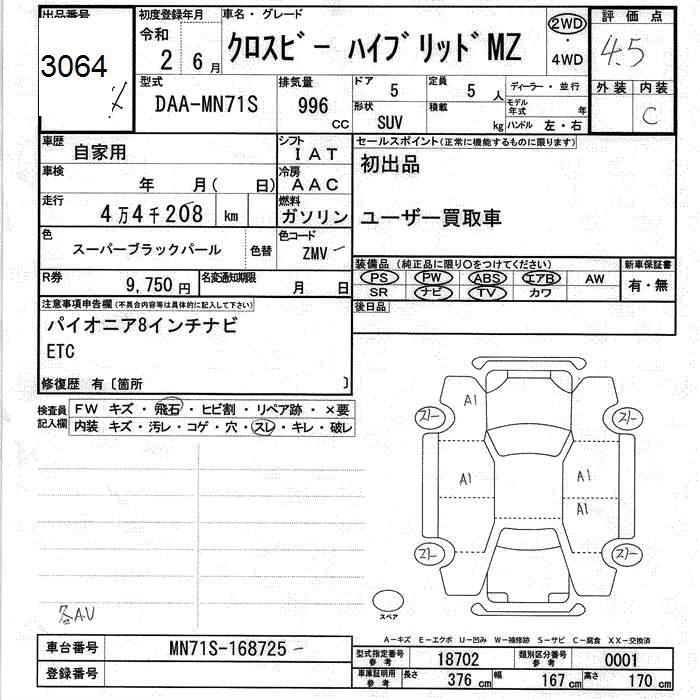 出品番号
3064
初度登録年月
令和
2 6月
車名・グレード
クロスビー ハイブリッドMZ
2WD
・
4WD
評価点
4.5
外装 内装
C
型式
DAA-MN71S
排気量
996
CC
ドア
5
定員
5 人
形状
SUV
積載
kg
ディーラー・並行
モデル年式 年
ハンドル 左・右
車歴
自家用
シフト
IAT
車検
年 月( 日)
冷房
AAC
走行
4万4千208 km
燃料
ガソリン
色
スーパーブラックパール
色替
色コード
ZMV
R券
9,750円
名変通知期限
月 日
セールスポイント(正常に機能するものに限ります)
初出品
ユーザー買取車
装備品(純正品に限り〇をつけてください)
PS PW ABS エアB AW
SR ナビ TV カワ
新車保証書
有・無
後日品
注意事項申告欄(不具合内容等は具体的に記入して下さい)
パイオニア8インチナビ
ETC
修復歴 有〔箇所 〕
検査員
記入欄
FW キズ・飛石・ヒビ割・リペア跡・×要
内装 キズ・汚レ・コゲ・穴・スレ・キレ・破レ
A1
A1
A1
A1
スペア
A−キズ E−エクボ U−凹み W−補修跡 S−サビ C−腐食 XX−交換済
車台番号
MN71S-168725
登録番号
型式指定番号
参考
18702
類別区分番号
参考
0001
車庫証明用
参考
長さ 376 cm
幅 167 cm
高さ 170 cm